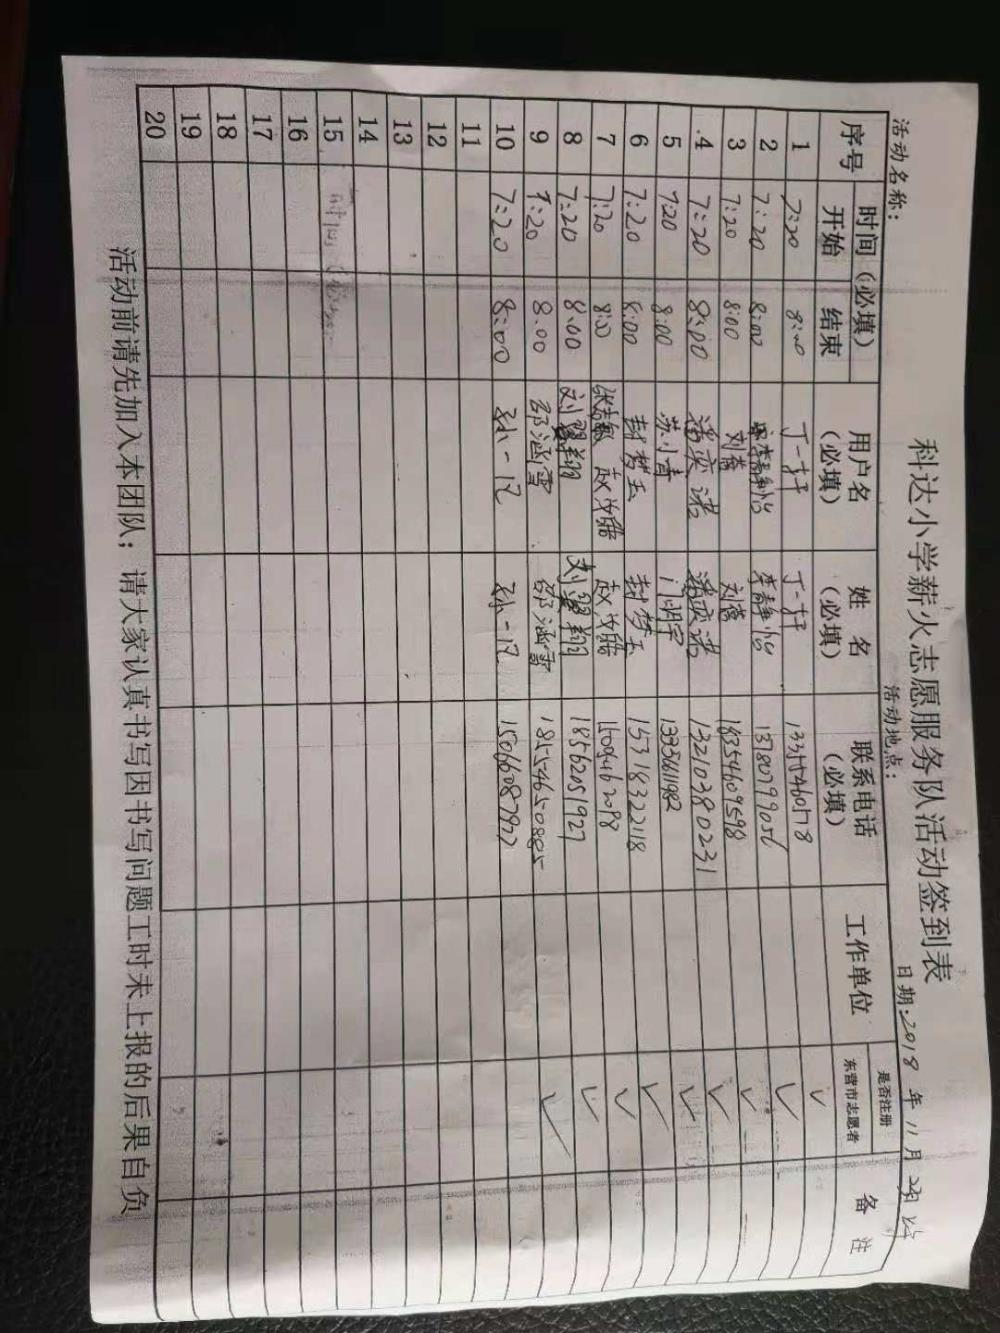 科达小学薪火志愿服务队活动签到表
活动名称： 活动地点： 日期:2018 年 11 月
序号 时间（必填） 用户名（必填） 姓 名（必填） 联系电话（必填） 工作单位 是否注册东营市志愿者 备 注
开始 结束
1 7:20 8:00 丁一 丁一 ✓
2 7:20 8:00 李静怡 李静怡 13780799056 ✓
3 7:20 8:00 刘蓓 刘蓓 18354609598 ✓
4 7:20 8:00 潘奕诺 潘奕诺 13210380231 ✓
5 7:20 8:00 苏小青 13356611982 ✓
6 7:20 8:00 封梦玉 封梦玉 15318322118 ✓
7 7:20 8:00 赵 赵 1505462098 ✓
8 7:20 8:00 刘翼翔 刘翼翔 18562051927 ✓
9 7:20 8:00 邵涵雪 邵涵雪 18554650885 ✓
10 7:20 8:00 孙一凡 孙一凡 15066087922
11
12
13
14
15
16
17
18
19
20
活动前请先加入本团队；请大家认真书写因书写问题工时未上报的后果自负